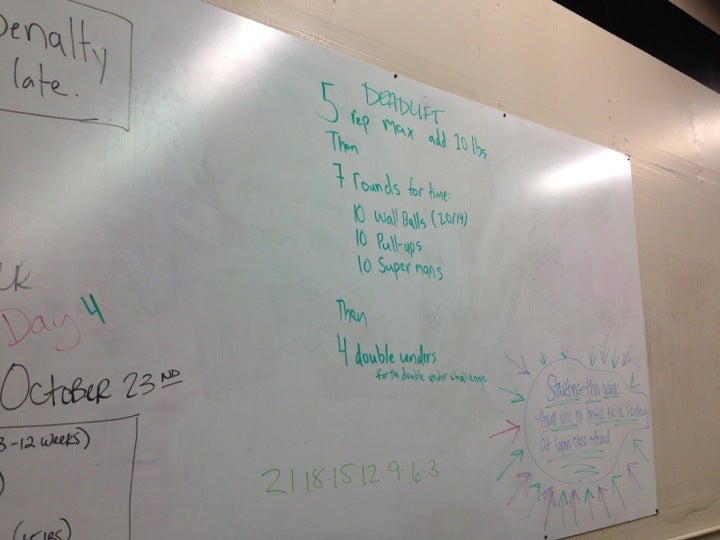 Penalty
late.
Day 4
OCTOBER 23ND
3-12 weeks)
)
DEADLIFT
5 rep max add 10 lbs
Then
7 rounds for time:
10 Wall Balls (20/14)
10 Pull-ups
10 Super mans
Then
4 double unders
for the double under challenge
21·18·15·12·9·6·3
Starting this week
there will no longer be a Friday
at